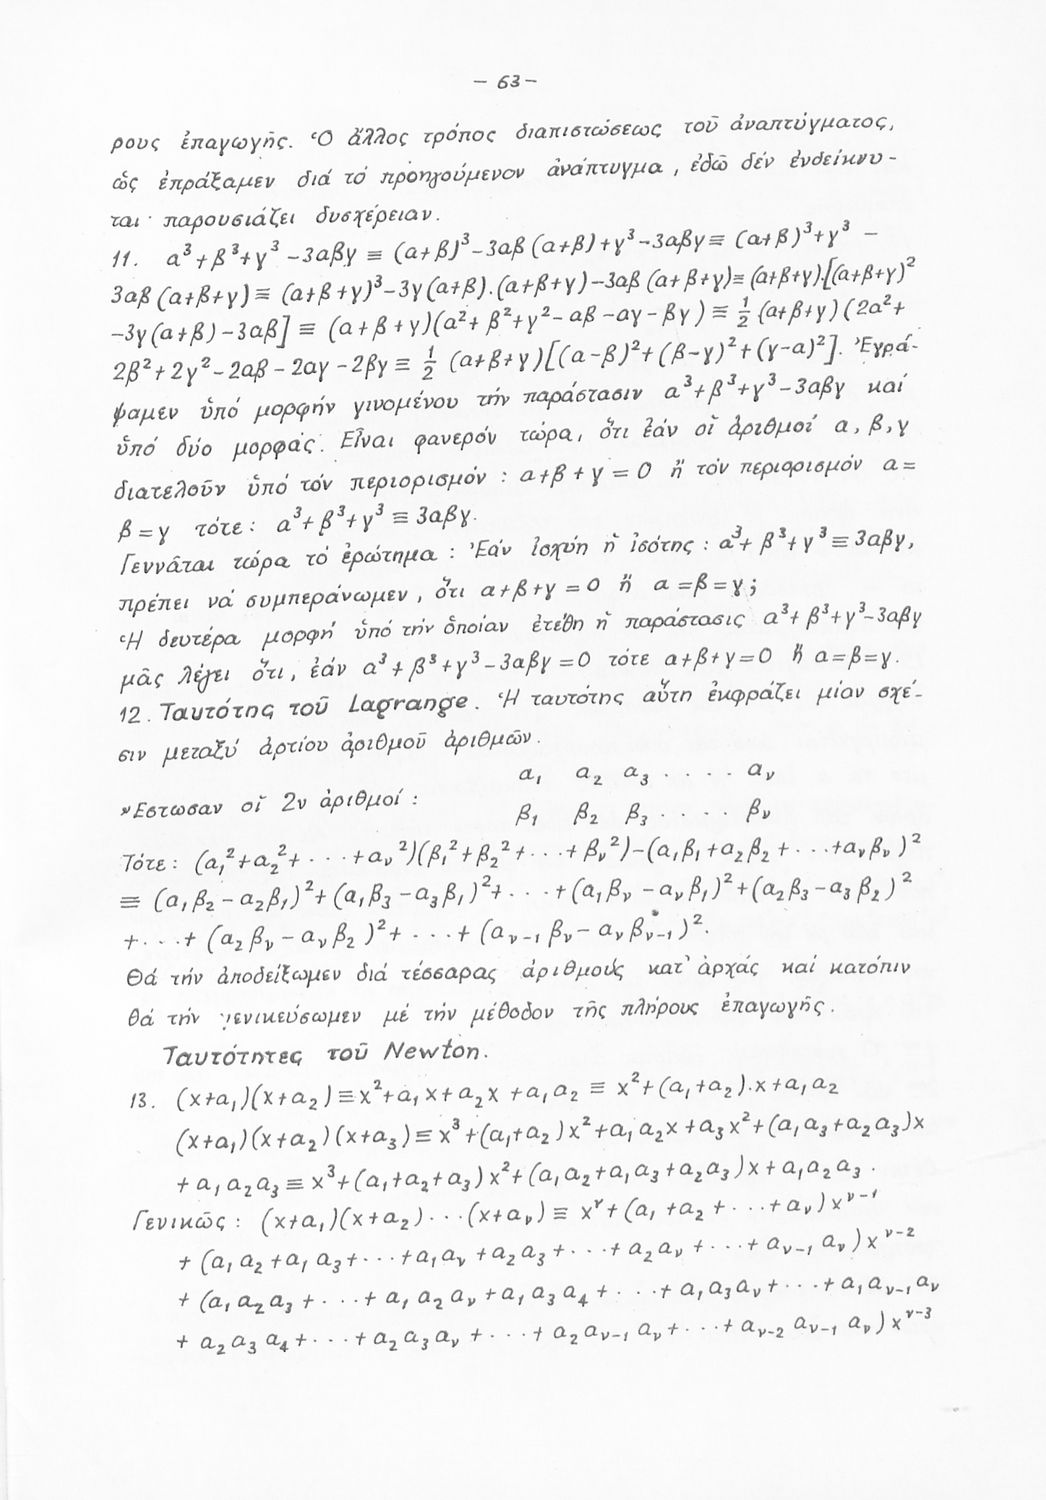 - 63 -
ρους ἐπαγωγῆς. Ὁ ἄλλος τρόπος διαπιστώσεως τοῦ ἀναπτύγματος,
ὡς ἐπράξαμεν διά τό προηγούμενον ἀνάπτυγμα, ἐδῶ δέν ἐνδείκνυ-
ται· παρουσιάζει δυσχέρειαν.
11. α³+β³+γ³-3αβγ ≡ (α+β)³-3αβ(α+β)+γ³-3αβγ ≡ (α+β)³+γ³ -
3αβ(α+β+γ) ≡ (α+β+γ)³-3γ(α+β).(α+β+γ)-3αβ(α+β+γ) ≡ (α+β+γ).[(α+β+γ)²
-3γ(α+β)-3αβ] ≡ (α+β+γ)(α²+β²+γ²-αβ-αγ-βγ) ≡ ½(α+β+γ)(2α²+
2β²+2γ²-2αβ-2αγ-2βγ ≡ ½ (α+β+γ)[(α-β)²+(β-γ)²+(γ-α)²]. Ἐγρά-
ψαμεν ὑπό μορφήν γινομένου τήν παράστασιν α³+β³+γ³-3αβγ καί
ὑπό δύο μορφάς. Εἶναι φανερόν τώρα, ὅτι ἐάν οἱ ἀριθμοί α,β,γ
διατελοῦν ὑπό τόν περιορισμόν : α+β+γ=0 ἤ τόν περιορισμόν α=
β=γ τότε: α³+β³+γ³ ≡ 3αβγ.
Γεννᾶται τώρα τό ἐρώτημα : Ἐάν ἰσχύη ἡ ἰσότης : α³+β³+γ³ ≡ 3αβγ,
πρέπει νά συμπεράνωμεν, ὅτι α+β+γ=0 ἤ α=β=γ;
Ἡ δευτέρα μορφή ὑπό τήν ὁποίαν ἐτέθη ἡ παράστασις α³+β³+γ³-3αβγ
μᾶς λέγει ὅτι, ἐάν α³+β³+γ³-3αβγ=0 τότε α+β+γ=0 ἤ α=β=γ.
12. Ταυτότης τοῦ Lagrange. Ἡ ταυτότης αὕτη ἐκφράζει μίαν σχέ-
σιν μεταξύ ἀρτίου ἀριθμοῦ ἀριθμῶν.
α₁ α₂ α₃ · · · · αᵥ
Ἔστωσαν οἱ 2ν ἀριθμοί :
β₁ β₂ β₃ · · · · βᵥ
Τότε: (α₁²+α₂²+ · · · +αᵥ²)(β₁²+β₂²+ · · · +βᵥ²)-(α₁β₁+α₂β₂+ · · · +αᵥβᵥ)²
≡ (α₁β₂-α₂β₁)²+(α₁β₃-α₃β₁)²+ · · · +(α₁βᵥ-αᵥβ₁)²+(α₂β₃-α₃β₂)²
+ · · · +(α₂βᵥ-αᵥβ₂)²+ · · · +(αᵥ₋₁βᵥ-αᵥβᵥ₋₁)².
Θά τήν ἀποδείξωμεν διά τέσσαρας ἀριθμούς κατ' ἀρχάς καί κατόπιν
θά τήν γενικεύσωμεν μέ τήν μέθοδον τῆς πλήρους ἐπαγωγῆς.
Ταυτότητες τοῦ Newton.
13. (x+α₁)(x+α₂) ≡ x²+α₁x+α₂x+α₁α₂ ≡ x²+(α₁+α₂).x+α₁α₂
(x+α₁)(x+α₂)(x+α₃) ≡ x³+(α₁+α₂)x²+α₁α₂x+α₃x²+(α₁α₃+α₂α₃)x
+α₁α₂α₃ ≡ x³+(α₁+α₂+α₃)x²+(α₁α₂+α₁α₃+α₂α₃)x+α₁α₂α₃.
Γενικῶς : (x+α₁)(x+α₂) · · · (x+αᵥ) ≡ xᵛ+(α₁+α₂+ · · · +αᵥ)xᵛ⁻¹
+ (α₁α₂+α₁α₃+ · · · +α₁αᵥ+α₂α₃+ · · · +α₂αᵥ+ · · · +αᵥ₋₁αᵥ)xᵛ⁻²
+ (α₁α₂α₃+ · · · +α₁α₂αᵥ+α₁α₃α₄+ · · · +α₁α₃αᵥ+ · · · +α₁αᵥ₋₁αᵥ
+ α₂α₃α₄+ · · · +α₂α₃αᵥ+ · · · +α₂αᵥ₋₁αᵥ+ · · · +αᵥ₋₂αᵥ₋₁αᵥ)xᵛ⁻³